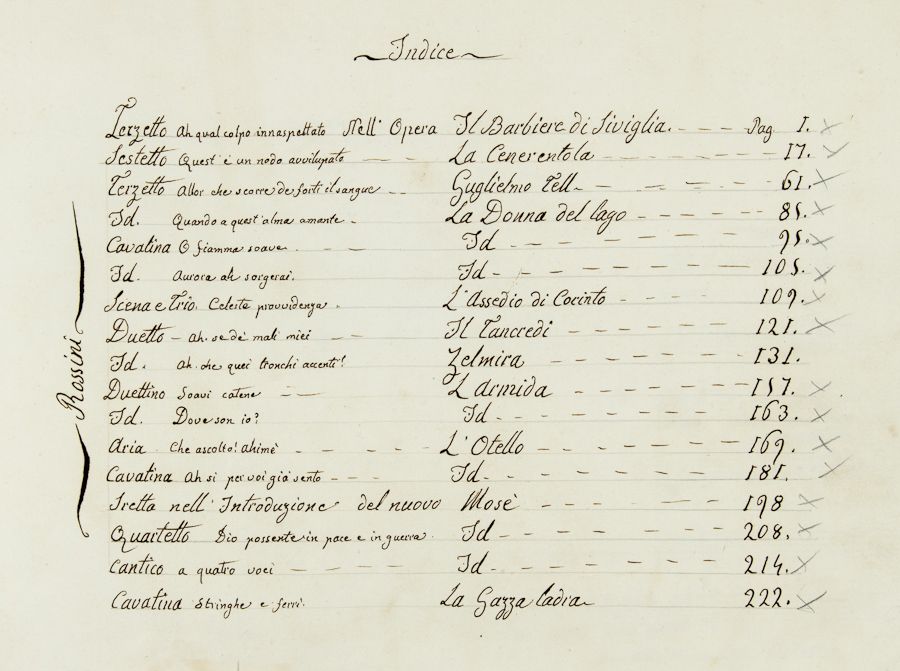 Indice
Terzetto Ah qual colpo innaspettato Nell' Opera Il Barbiere di Siviglia. Pag 1.
Sestetto Quest' è un nodo avvilupato La Cenerentola 17.
Terzetto Allor che scorre de forti il sangue Guglielmo Tell 61.
Id. Quando a quest' alma amante La Donna del lago 85.
Cavatina O fiamma soave Id 95.
Id. Aurora ah sorgerai. Id 105.
Scena e Trio. Celeste provvidenza L'Assedio di Cocinto 109.
Duetto Ah. se de' mali miei Il Tancredi 121.
Id. Ah. che quei tronchi accenti! Zelmira 131.
Duettino Soavi catene L'Armida 157.
Id. Dove son io? Id 163.
Aria Che ascolto! Ahimè L'Otello 169.
Cavatina Ah sì per voi già sento Id 181.
Stretta nell' Introduzione del nuovo Mosè 198
Quartetto Dio possente in pace e in guerra. Id 208.
Cantico a quatro voci Id 214.
Cavatina Stringhe e ferri. La Gazza ladra 222.
Rossini